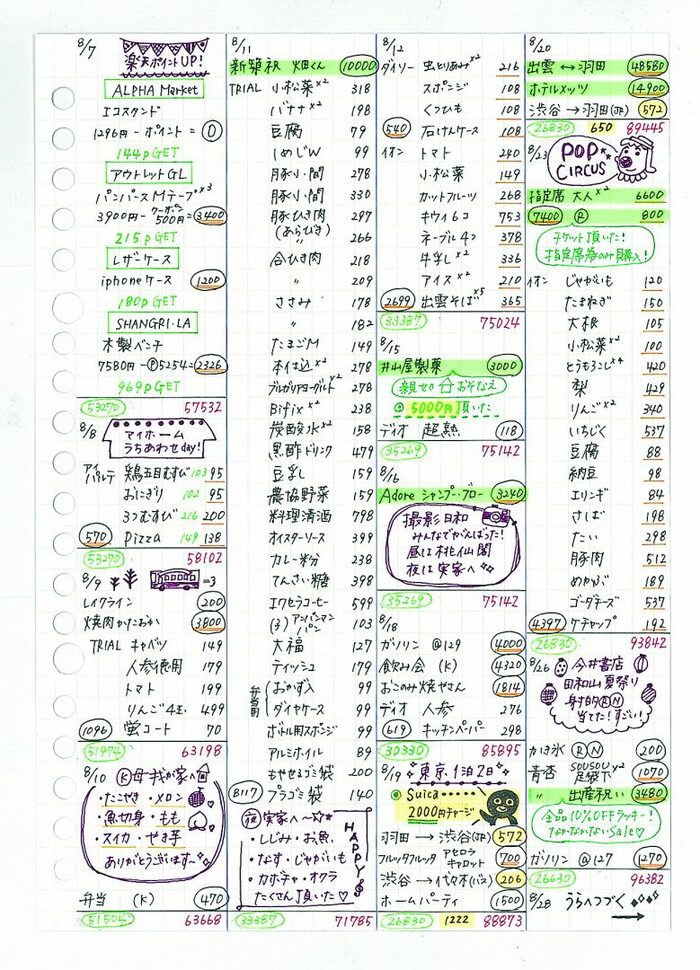 8/7
楽天ポイントUP!
ALPHA Market
エコスタンド
1296円-ポイント = 0
144p GET
アウトレットGL
パンパースMテープ×3
3900円-クーポン500円= 3400
215p GET
レザーケース
iphoneケース 1200
180p GET
SHANGRI-LA
木製ベンチ
7580円-Ⓟ5254= 2326
969p GET
53270 57532
8/8
マイホーム
うちあわせday!
鶏五目むすび 103 95
おにぎり 102 95
3つむすび 216 200
570 Pizza 149 138
53270 58102
8/9 =3
レイクライン 200
焼肉かたおか 3800
TRIAL キャベツ 149
人参徳用 179
トマト 199
りんご4玉 499
1096 蛍コート 70
51974 63198
8/10 Ⓚ母 我が家へ
・たこやき ・メロン
・魚切身 ・もも
・スイカ ・やき芋
ありがとうございます〜
弁当 (K) 470
51504 63668
8/11
新築祝 畑田くん 10000
TRIAL 小松菜×2 318
バナナ×2 198
豆腐 79
しめじW 99
豚小間 278
豚小間 330
豚ひき肉 297
(あらびき)
〃 266
合びき肉 218
〃 209
ささみ 178
〃 182
たまごM 149
本仕込×2 278
ブルガリアヨーグルト×2 278
Bifix×2 238
炭酸水×2 158
黒酢ドリンク 479
豆乳 159
農協野菜 159
料理清酒 798
オイスターソース 399
カレー粉 238
てんさい糖 398
エクセラコーヒー 599
(3)アンパンマンパン 103
大福 127
ティッシュ 179
弁当箱 おかず入 99
ダイヤケース 99
ボトル用スポンジ 99
アルミホイル 89
もやせるゴミ袋 200
8117 プラゴミ袋 140
夜 実家へ〜
・しじみ・お魚
・なす・じゃがいも
・カボチャ・オクラ
たくさん頂いた♡
HAPPY
33387 71785
8/12
ダイソー 虫とりあみ×2 216
スポンジ 108
くつひも 108
540 石けんケース 108
イオン トマト 240
小松菜 149
カットフルーツ 268
キウイ6コ 753
ネーブル4コ 378
牛乳×2 336
アイス×2 210
2699 出雲そば×5 365
33387 75024
8/15
井山屋製菓 3000
親せき おそなえ
5000円頂いた
ディオ 超熟 118
35269 75142
8/16
Adore シャンプー・ブロー 3240
撮影日和
みんなでがんばった!
昼は桃仙閣
夜は実家へ
35269 75142
8/18
ガソリン @129 4000
飲み会 (K) 4320
おこのみ焼やさん 1814
ディオ 人参 276
619 キッチンペーパー 298
30330 85895
8/19 東京1泊2日
Suica
2000円チャージ
羽田→渋谷(JR) 572
フルッタフルッタ アセロラ キャロット 700
渋谷→代々木(バス) 206
ホームパーティ 1500
26830 1222 88873
8/20
出雲↔羽田 48580
ホテルメッツ 14900
渋谷→羽田(JR) 572
26830 650 89445
8/23
POP CIRCUS
指定席 大人×2 6600
7400 Ⓡ 800
チケット頂いた!
指定席券のみ購入!
イオン じゃがいも 120
たまねぎ 150
大根 105
小松菜×2 100
とうもろこし×4 420
梨 429
りんご×2 340
いちじく 537
豆腐 88
納豆 98
エリンギ 84
さしば 198
たい 298
豚肉 512
めかぶ 189
ゴーダチーズ 537
4397 ケチャップ 192
26830 93842
8/26 今井書店
田和山夏祭り
射的ⓇⓃ
当てた!すごい!
かき氷 ⓇⓃ 200
青杏 SOUSOU足袋下×2 1070
〃 出産祝い 3480
全品10%OFFラッキー!
なかなかないSale♡
ガソリン @127 1270
26630 96382
8/28 うらへつづく